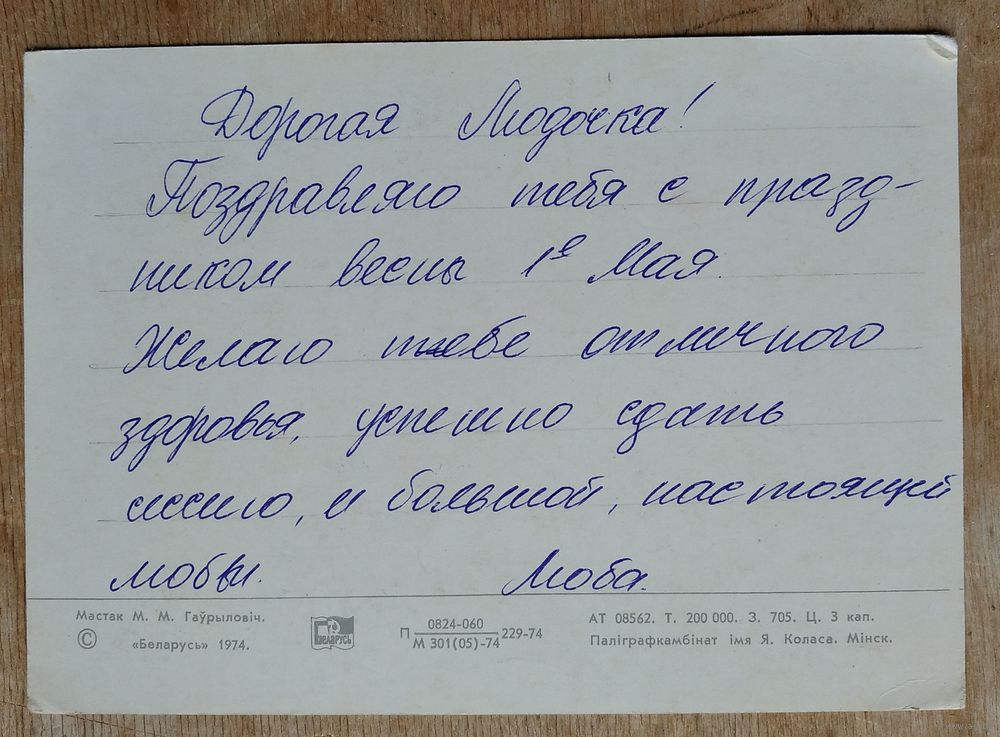 Дорогая Людочка!
Поздравляю тебя с празд-
ником весны 1е Мая.
Желаю тебе отличного
здоровья, успешно сдать
сессию, и большой, настоящей
любви. Люба.
Мастак М. М. Гаўрыловіч.
© «Беларусь» 1974.
Беларусь
П 0824-060
М 301(05)-74 229-74
АТ 08562. Т. 200 000. З. 705. Ц. 3 кап.
Паліграфкамбінат імя Я. Коласа. Мінск.